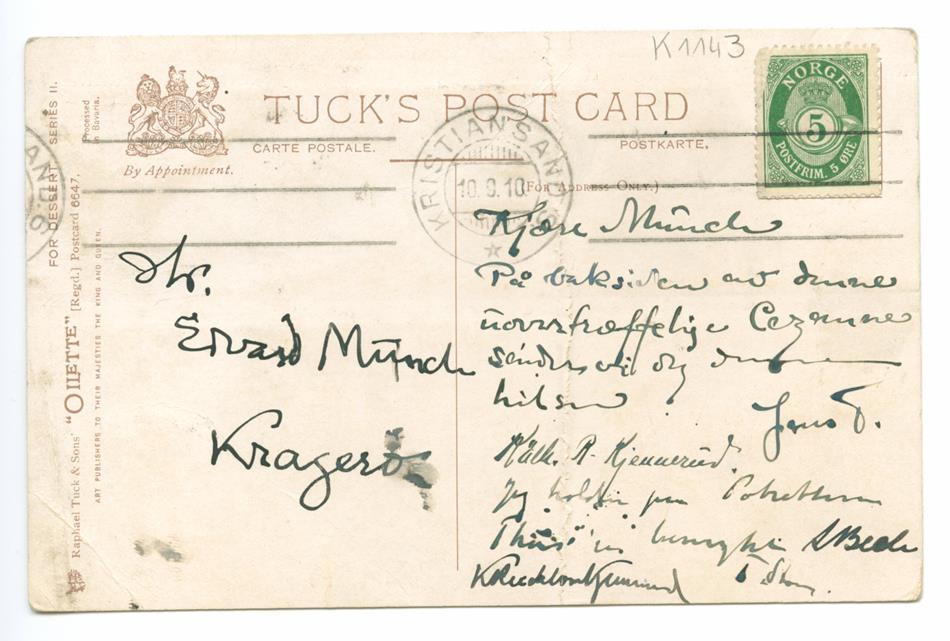 K1143
TUCK'S POST CARD
CARTE POSTALE.
POSTKARTE.
By Appointment.
(FOR ADDRESS ONLY.)
NORGE
5
POSTFRIM. 5 ØRE
KRISTIANSAND.S
10.9.10
AND.S
Processed in Bavaria.
FOR DESSERT SERIES II.
Raphael Tuck & Sons' "OILETTE" [Regd.] Postcard 6647.
ART PUBLISHERS TO THEIR MAJESTIES THE KING AND QUEEN.
Hr.
Edvard Münch
Kragerø
Kjære Münch
På baksiden av denne
uovertræffelige Cezanne
sender vi dig denne
hilsen
Jens T.
Käth. R. Kjennerud.
Jeg holder paa